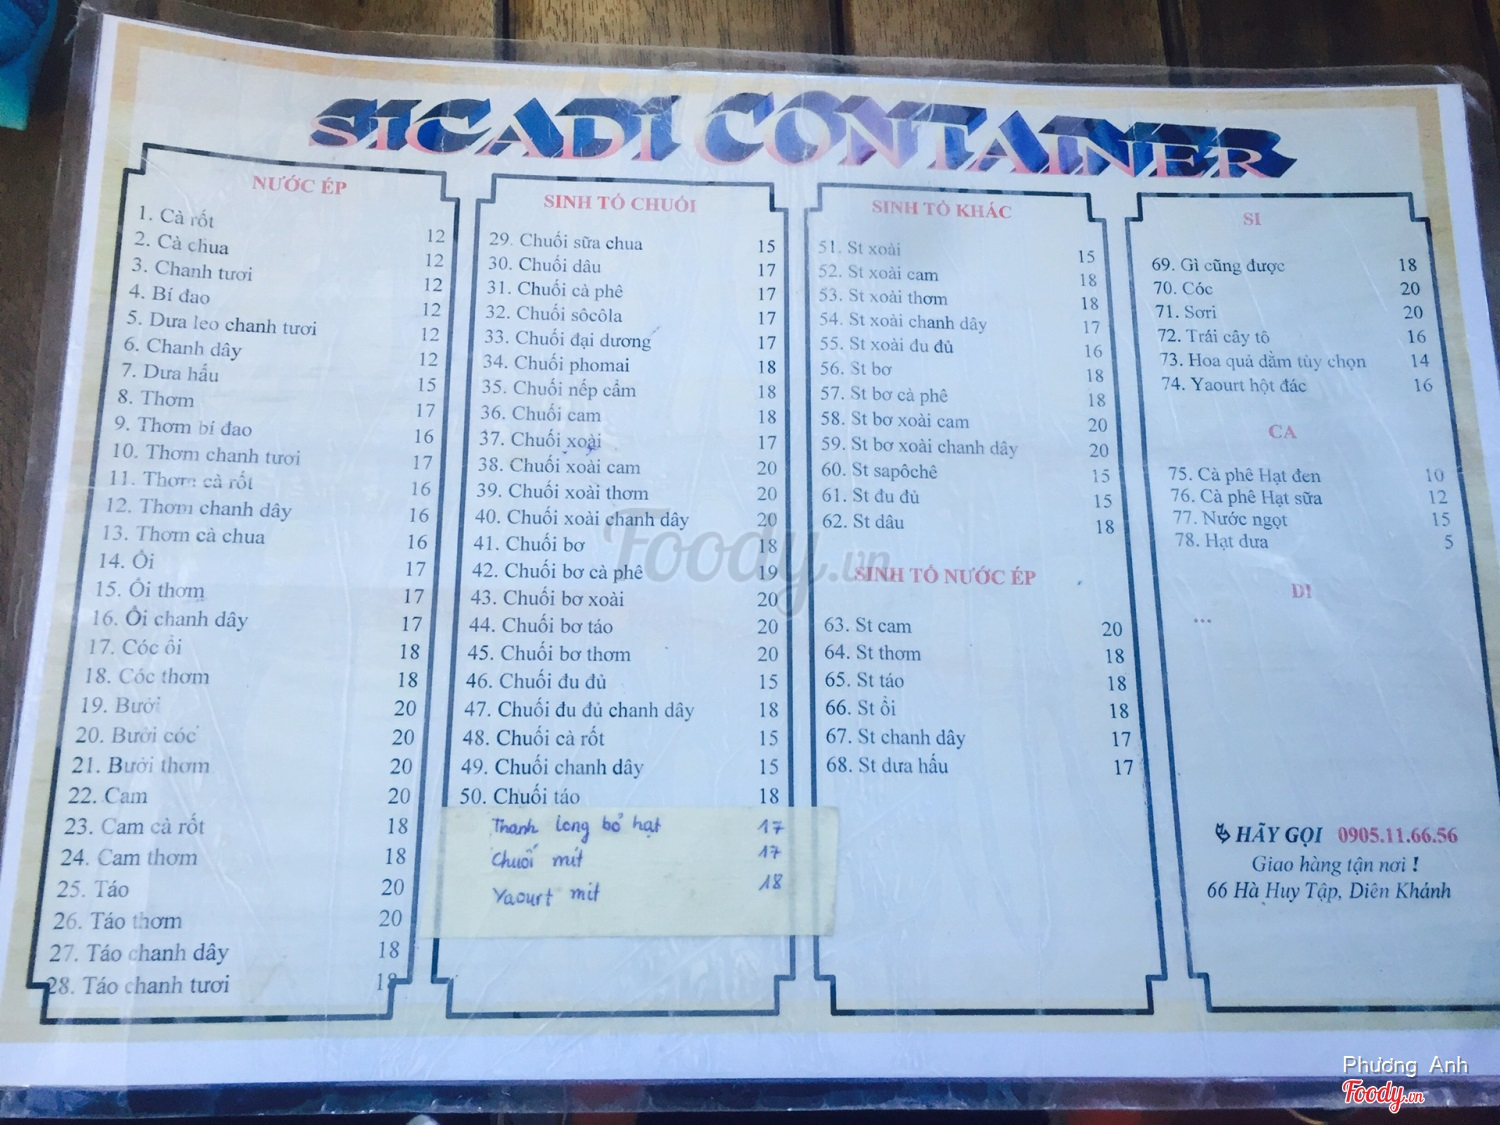 SICADI CONTAINER
NƯỚC ÉP
1. Cà rốt 12
2. Cà chua 12
3. Chanh tươi 12
4. Bí đao 12
5. Dưa leo chanh tươi 12
6. Chanh dây 12
7. Dưa hấu 15
8. Thơm 17
9. Thơm bí đao 16
10. Thơm chanh tươi 17
11. Thơm cà rốt 16
12. Thơm chanh dây 16
13. Thơm cà chua 16
14. Ổi 17
15. Ổi thơm 17
16. Ổi chanh dây 17
17. Cóc ổi 18
18. Cóc thơm 18
19. Bưởi 20
20. Bưởi cóc 20
21. Bưởi thơm 20
22. Cam 20
23. Cam cà rốt 18
24. Cam thơm 18
25. Táo 20
26. Táo thơm 20
27. Táo chanh dây 18
28. Táo chanh tươi 18
SINH TỐ CHUỐI
29. Chuối sữa chua 15
30. Chuối dâu 17
31. Chuối cà phê 17
32. Chuối sôcôla 17
33. Chuối đại dương 17
34. Chuối phomai 18
35. Chuối nếp cẩm 18
36. Chuối cam 18
37. Chuối xoài 17
38. Chuối xoài cam 20
39. Chuối xoài thơm 20
40. Chuối xoài chanh dây 20
41. Chuối bơ 18
42. Chuối bơ cà phê 19
43. Chuối bơ xoài 20
44. Chuối bơ táo 20
45. Chuối bơ thơm 20
46. Chuối đu đủ 15
47. Chuối đu đủ chanh dây 18
48. Chuối cà rốt 15
49. Chuối chanh dây 15
50. Chuối táo 18
Thanh long bỏ hạt 17
Chuối mít 17
Yaourt mít 18
SINH TỐ KHÁC
51. St xoài 15
52. St xoài cam 18
53. St xoài thơm 18
54. St xoài chanh dây 17
55. St xoài đu đủ 16
56. St bơ 18
57. St bơ cà phê 18
58. St bơ xoài cam 20
59. St bơ xoài chanh dây 20
60. St sapôchê 15
61. St đu đủ 15
62. St dâu 18
SINH TỐ NƯỚC ÉP
63. St cam 20
64. St thơm 18
65. St táo 18
66. St ổi 18
67. St chanh dây 17
68. St dưa hấu 17
SI
69. Gì cũng được 18
70. Cóc 20
71. Sơri 20
72. Trái cây tô 16
73. Hoa quả dằm tùy chọn 14
74. Yaourt hột đác 16
CA
75. Cà phê Hạt đen 10
76. Cà phê Hạt sữa 12
77. Nước ngọt 15
78. Hạt dưa 5
DI
...
HÃY GỌI 0905.11.66.56
Giao hàng tận nơi !
66 Hà Huy Tập, Diên Khánh
Foody.vn
Phương Anh
Foody.vn